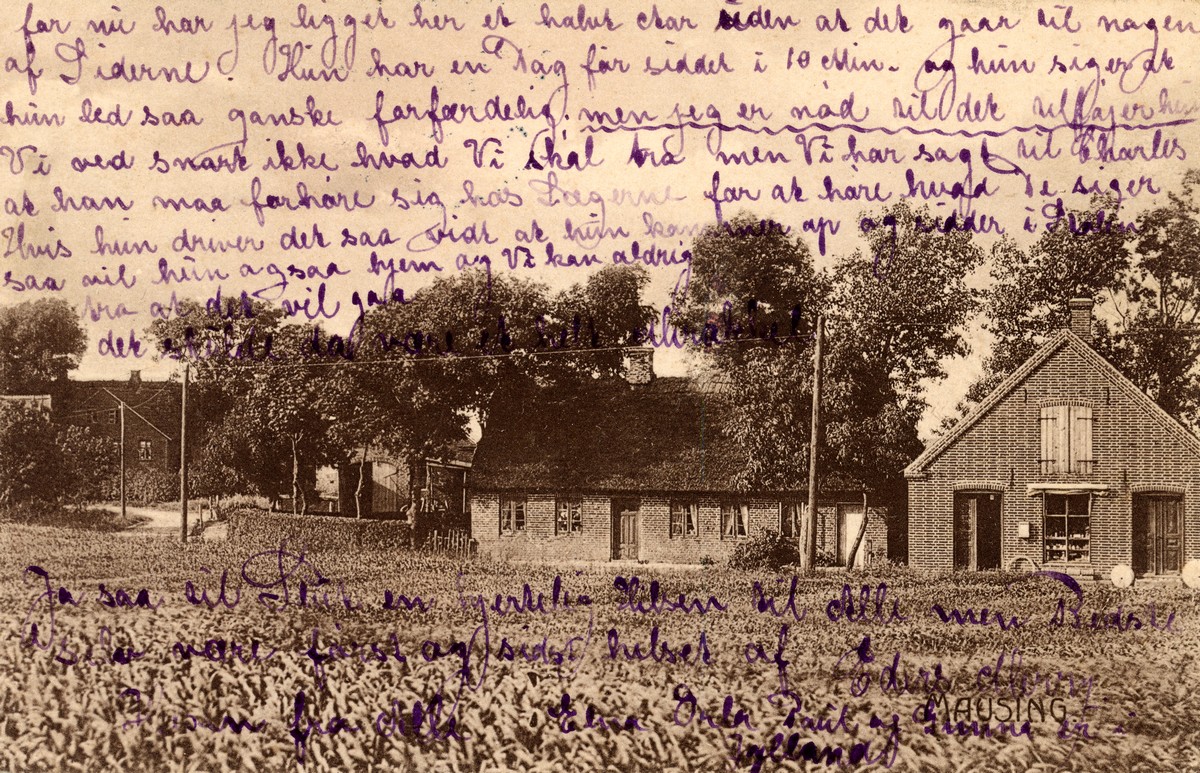 for nu har jeg ligget her et halvt Aar siden at det gaar til nogen
af Siderne. Hun har en Dag før siddet i 10 Min. og hun siger at
hun led saa ganske forfærdelig. men jeg er nød til det tilføjer hun
Vi ved snart ikke hvad Vi skal tro men Vi har sagt til Charles
at han maa forhøre sig hos Lægerne for at høre hvad De siger
Hvis hun driver det saa vidt at hun kommer op og sidder i Stolen
saa vil hun ogsaa hjem og Vi kan aldrig
tro at det vil gaa
det skulde da være et helt Mirakkel
Ja saa til Slut en hjertelig Hilsen til Alle men Bedste
være først og sidst hilset af Eders
fra Alle Edna Orla Poul og er i
Jylland
MAUSING